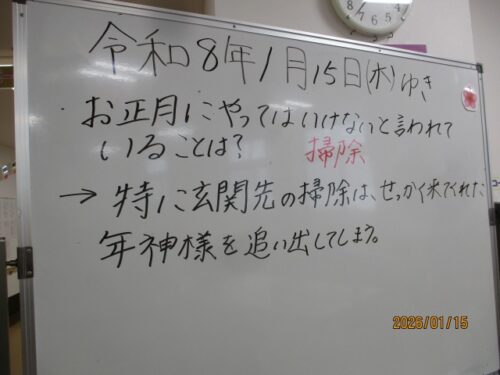 令和8年1月15日(木)ゆき
お正月にやってはいけないと言われて
いることは?
掃除
→特に玄関先の掃除は、せっかく来てくれた
年神様を追い出してしまう。
2026/01/15